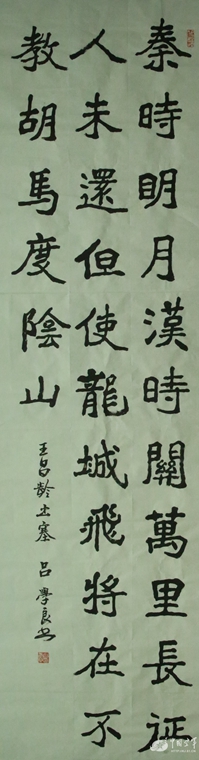 秦時明月漢時關萬里長征
人未還但使龍城飛將在不
教胡馬度陰山
王昌齡出塞 呂學良书